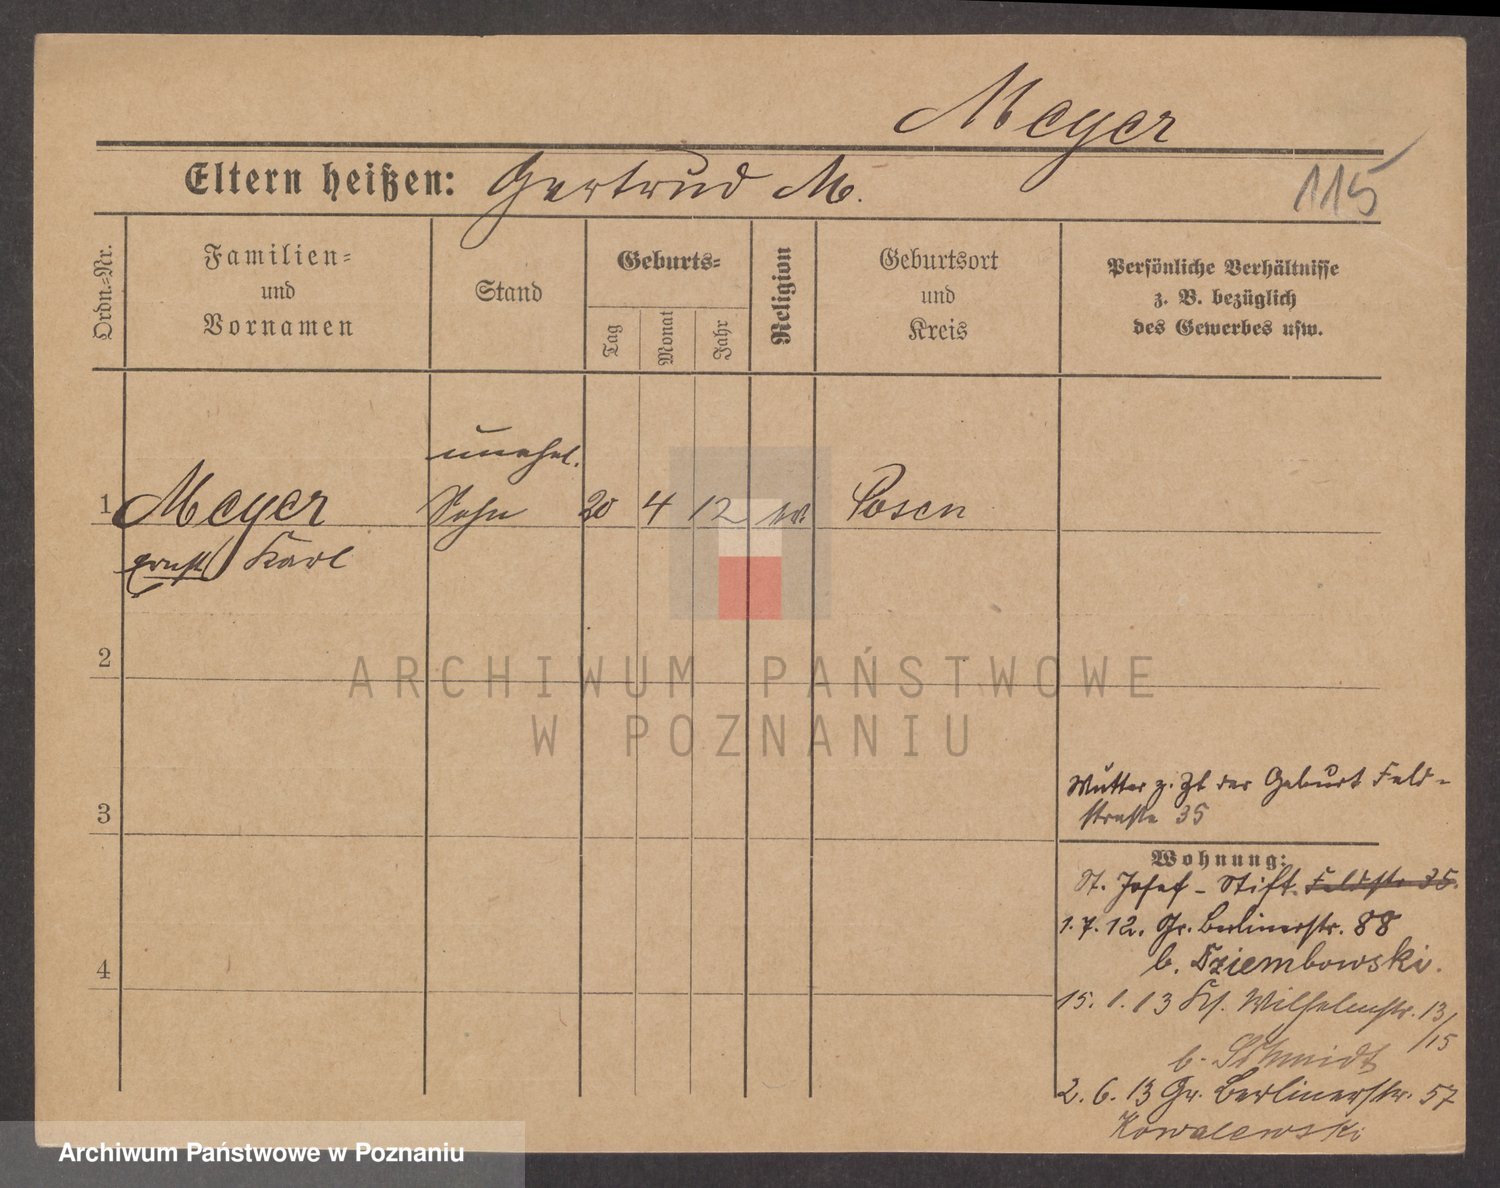 Meyer
Eltern heißen: Gertrud M.
115
Ordn.=Nr.
Familien=
und
Vornamen
Stand
Geburts=
Tag
Monat
Jahr
Religion
Geburtsort
und
Kreis
Persönliche Verhältnisse
z. B. bezüglich
des Gewerbes usw.
unehel.
1 Meyer Sohn 20 4 12 ev. Posen
Ernst Karl
2
ARCHIWUM PAŃSTWOWE
W POZNANIU
3
Mutter z. Zt der Geburt Feld-
straße 35
Wohnung:
St. Josef - Stift. Feldstr. 35.
1. 7. 12. Gr. Berlinerstr. 88
b. Dziembowski.
4
15. 1. 13 Wilhelmstr. 13/15
b. Schmidt
2. 6. 13 Gr. Berlinerstr. 57
Kowalewski
Archiwum Państwowe w Poznaniu